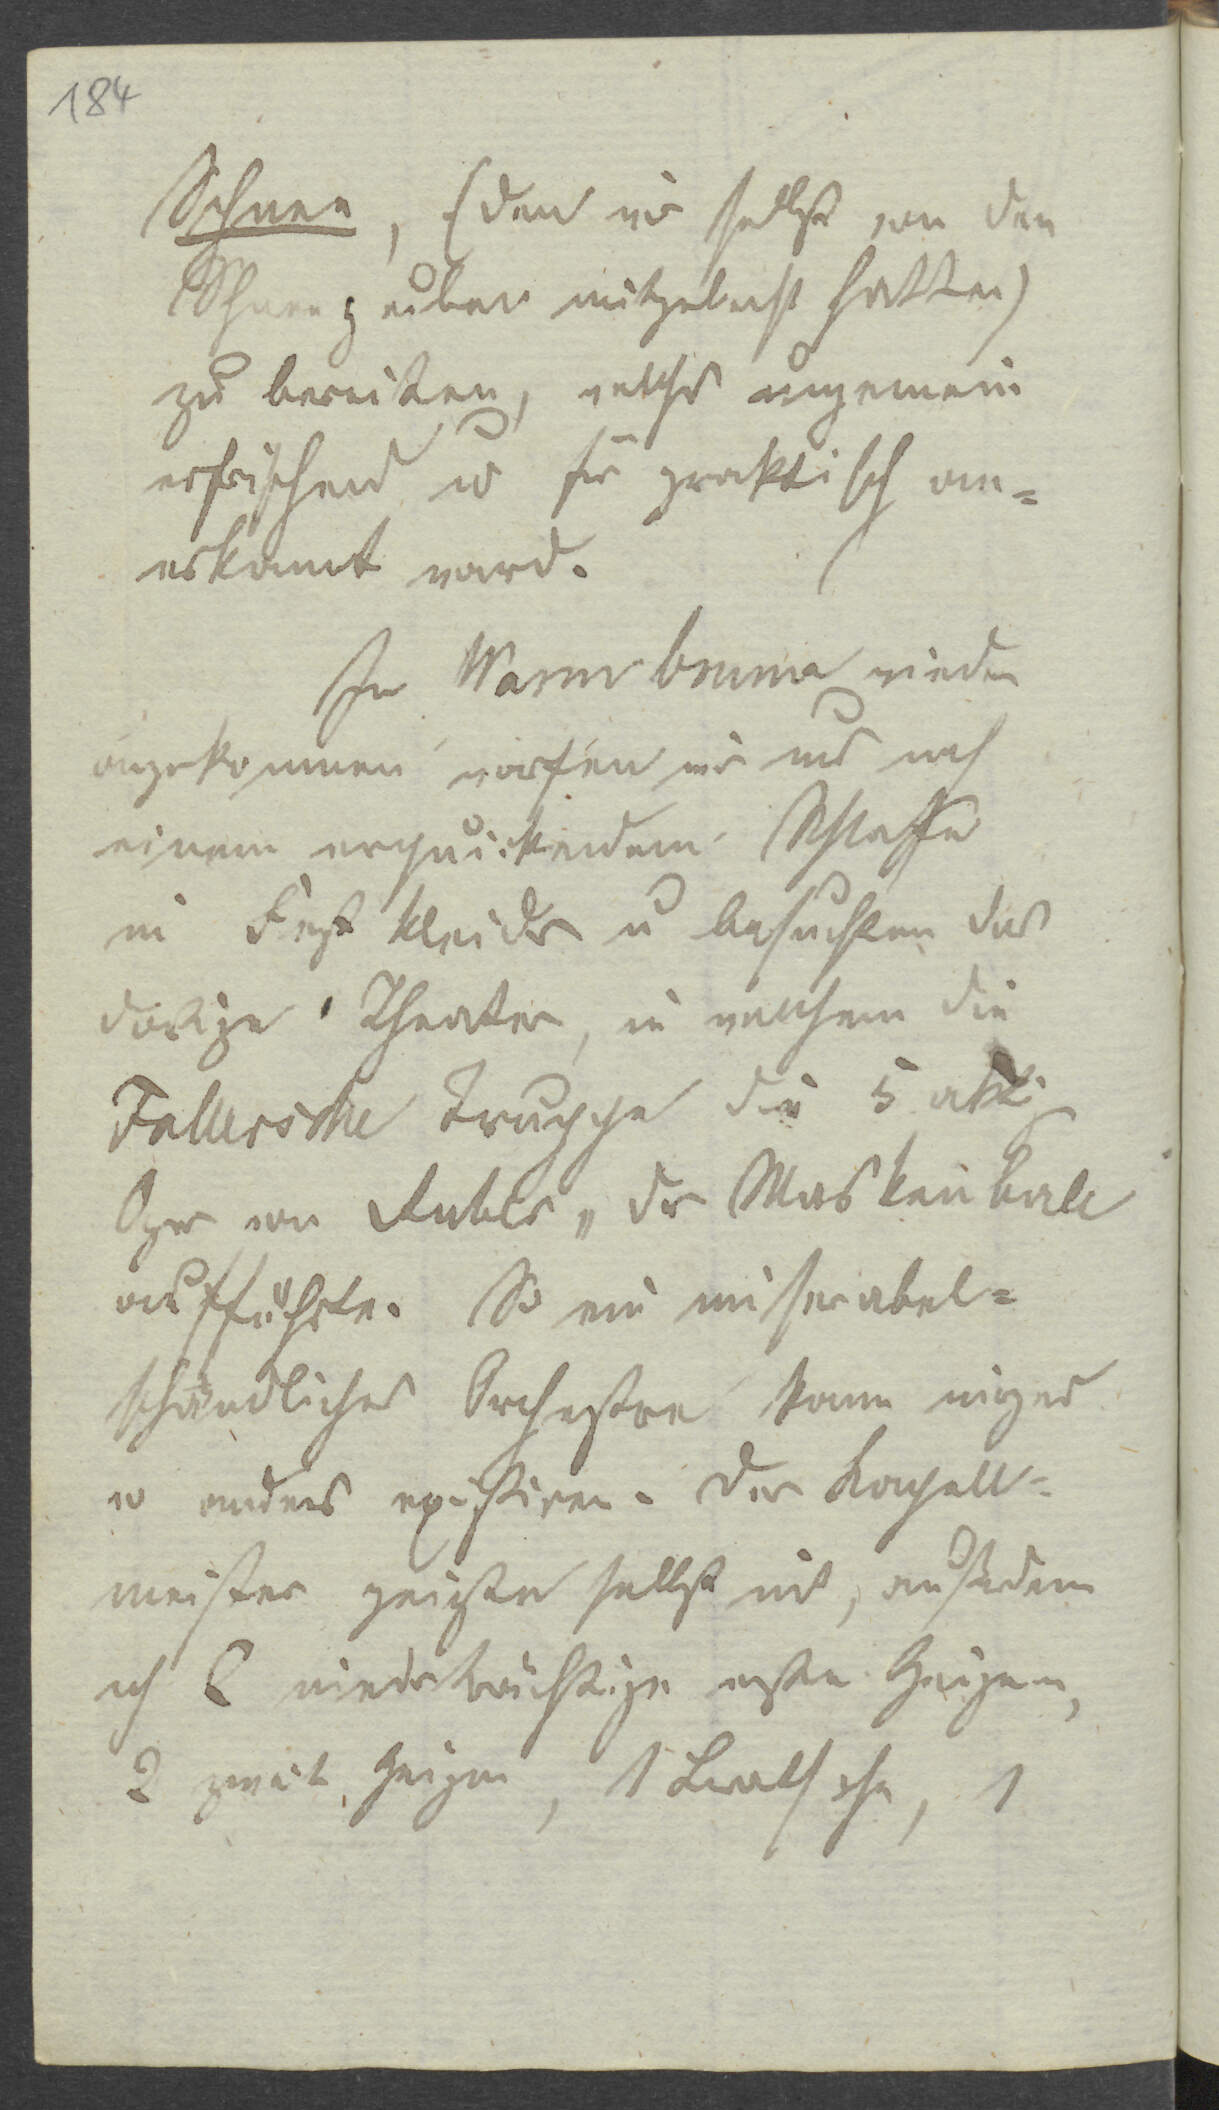 184
Schnee, (den wir selbst von den
Schneegruben mitgebracht hatten)
zu bereiten, welches ungemein
erfrischend u für praktisch an=
erkannt ward.
In Warmbrunn wieder
angekommen warfen wir uns nach
einem erquickendem Schlafe
in Festkleider u besuchten das
dasige Theater, in welchem die
Fallersche Truppe die 5 akti
Oper von Auber „der Maskenball
aufführte. So ein miserabel=
schändliches Orchestre kann nirgend
wo anders existiren. Der Kapell=
meister geigte selbst mit, außerdem
noch 2 niederträchtige erste Geigen,
2 zweite Geigen, 1 Bratsche, 1